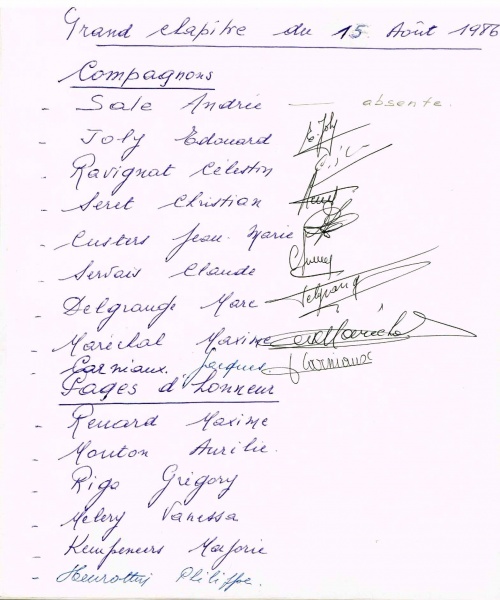 Grand chapitre du 15 Août 1986
Compagnons
- Sale Andrée — absente.
- Joly Edouard E. Joly
- Ravignat Célestin
- Seret Christian
- Custers Jean-Marie
- Servais Claude
- Delgrange Marc Delgrange
- Maréchal Maxime Maréchal
- Carniaux Jacques J Carniaux
Pages d'honneur
- Renard Maxime
- Mouton Aurélie.
- Rigo Grégory
- Melery Vanessa
- Kempeneers Marjorie
- Philippe.